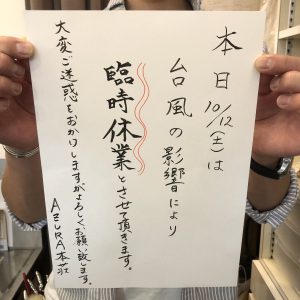 本日10/12(土)は
台風の影響により
臨時休業とさせて頂きます。
大変ご迷惑をおかけしますがよろしくお願い致します。
AZURA本荘